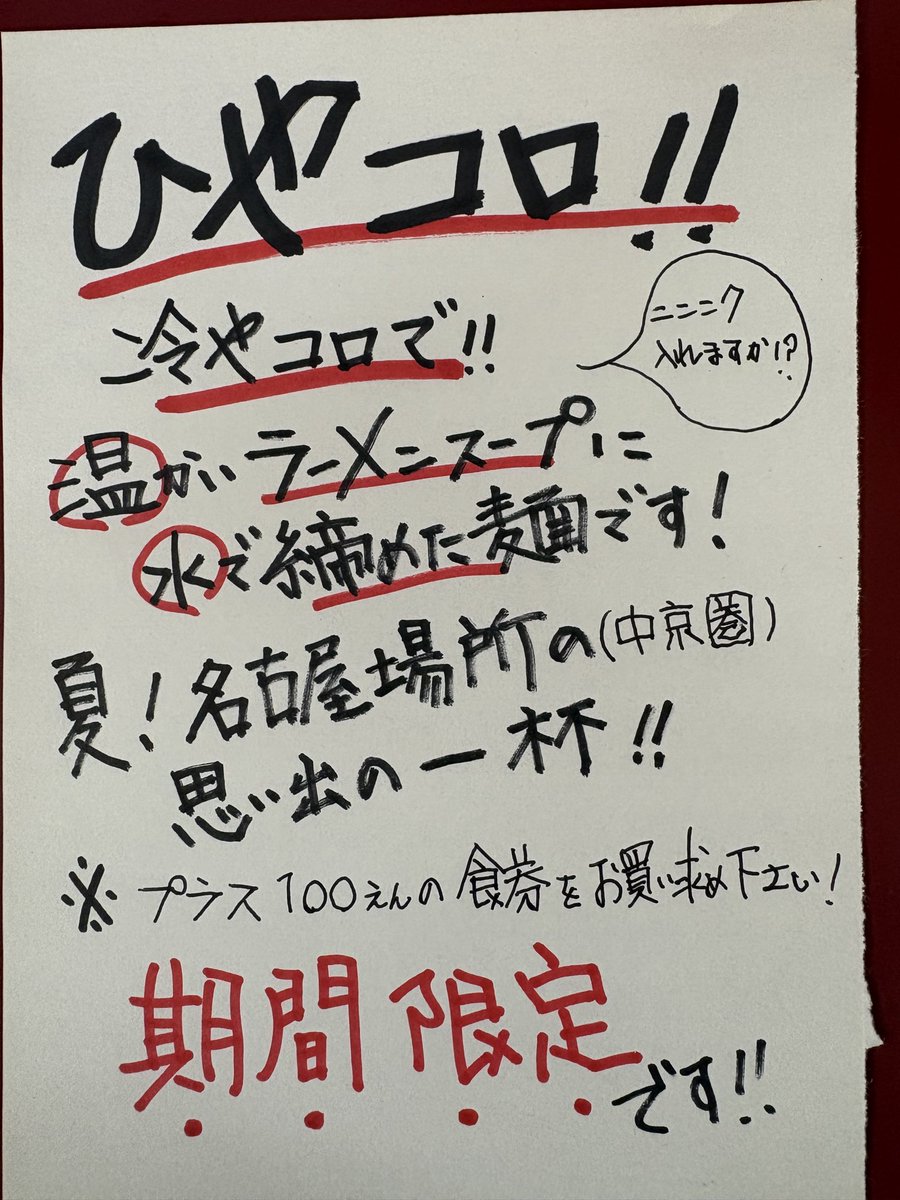 ひやコロ!!
冷やコロで!!
ニンニク
入れますか!?
温かいラーメンスープに
水で締めた麺です!
夏!名古屋場所の(中京圏)
思い出の一杯!!
※プラス100えんの食券をお買い求め下さい!
期間限定です!!